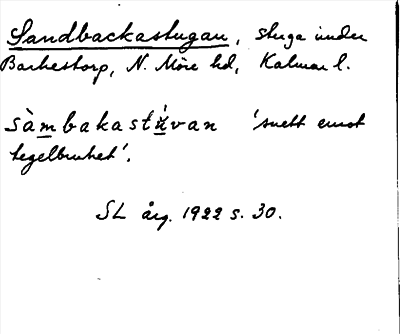 Sandbackastugan, stuga under
Barkestorp, N. Möre hd, Kalmar l.
sàmbakastúvan 'snett emot
tegelbruket'.
SL årg. 1922 s. 30.